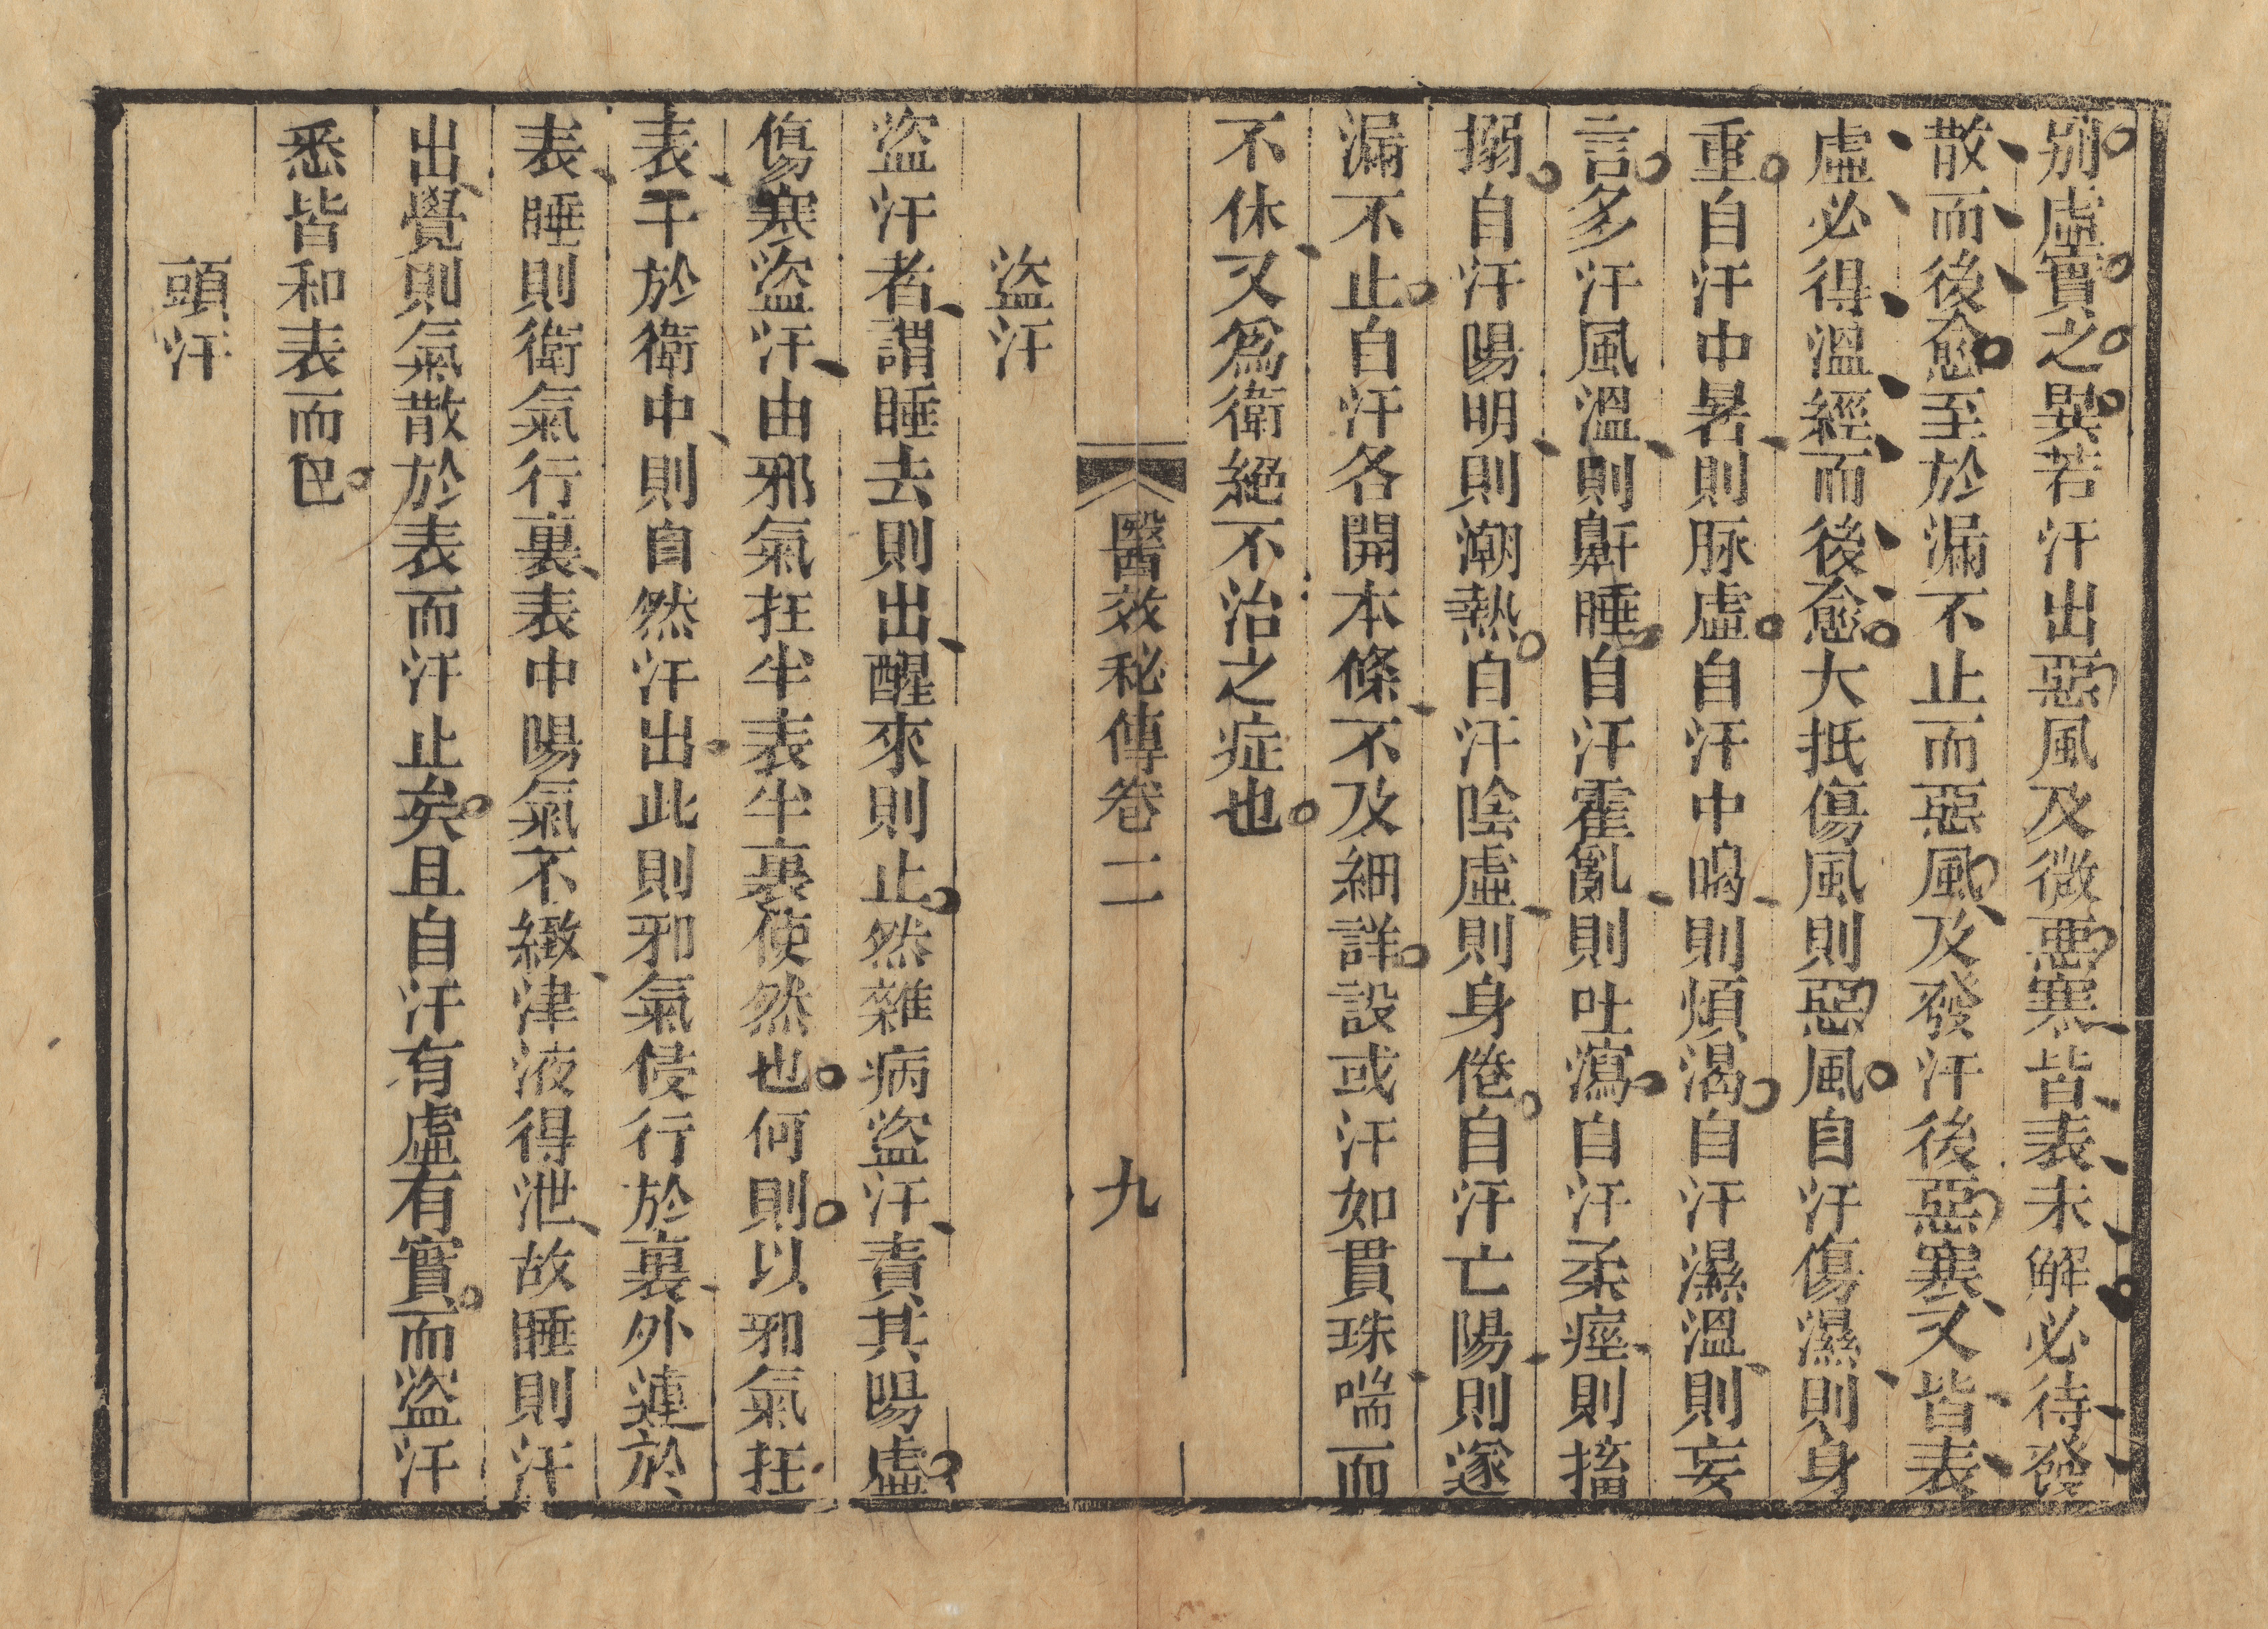 別虛實之異若汗出惡風及微惡寒皆表未解必待發
散而後愈至於漏不止而惡風及發汗後惡寒又皆表
虛必得溫經而後愈大抵傷風則惡風自汗傷濕則身
重自汗中暑則脉虛自汗中暍則煩渴自汗濕溫則妄
言多汗風溫則鼾睡自汗霍亂則吐瀉自汗柔痙則搐
搦自汗陽明則潮熱自汗陰虛則身倦自汗亡陽則遂
漏不止自汗各開本條不及細詳設或汗如貫珠喘而
不休又爲衛絕不治之症也
醫效秘傳卷二 九
盜汗
盜汗者謂睡去則出醒來則止然雜病盜汗責其陽虛
傷寒盜汗由邪氣在半表半裏使然也何則以邪氣在
表干於衛中則自然汗出此則邪氣侵行於裏外連於
表睡則衛氣行裏表中陽氣不緻津液得泄故睡則汗
出覺則氣散於表而汗止矣且自汗有虛有實而盜汗
悉皆和表而已
頭汗